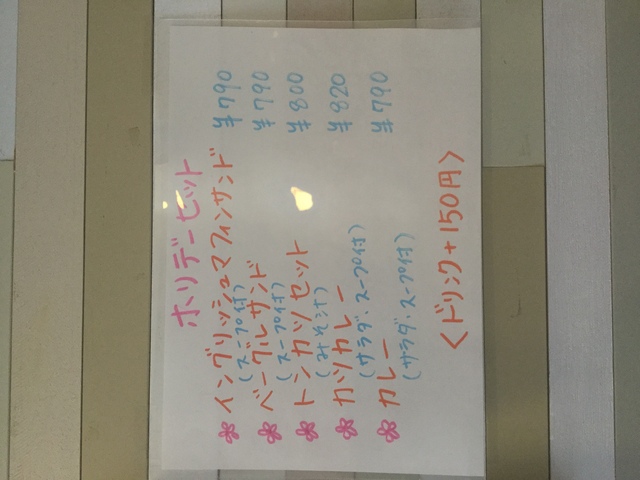 ホリデーセット
イングリッシュマフィンサンド ¥790
(スープ付)
ベーグルサンド ¥790
(スープ付)
トンカツセット ¥800
(みそ汁)
カツカレー ¥820
(サラダ・スープ付)
カレー ¥790
(サラダ・スープ付)
<ドリンク+150円>